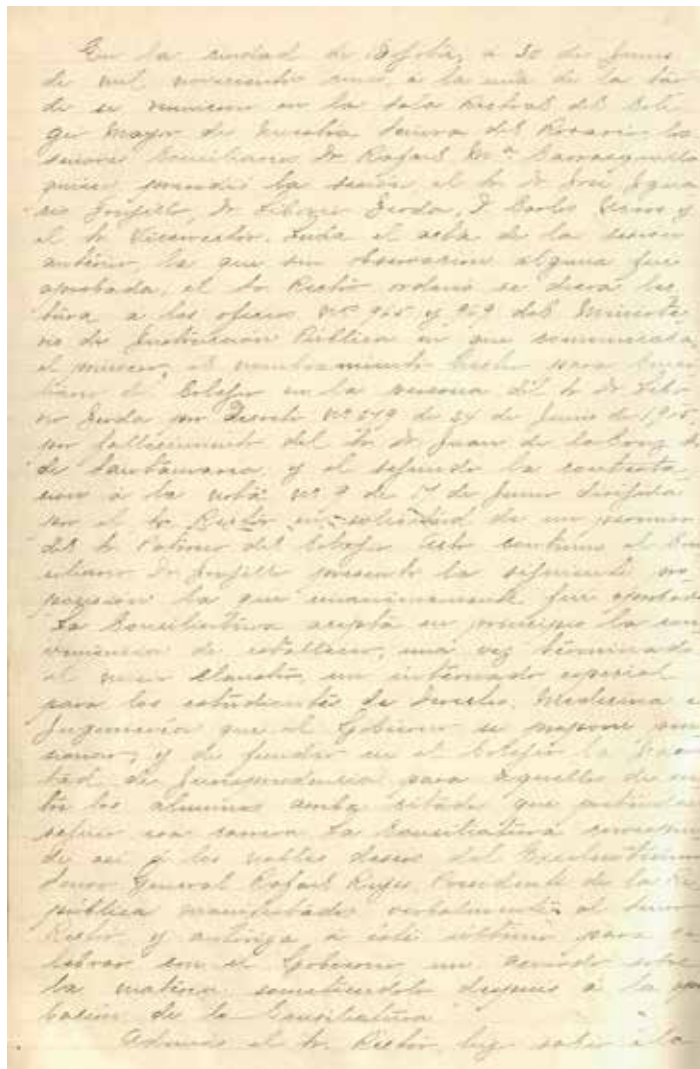 En la ciudad de Bogotá, á 30 de Junio
de mil novecientos cinco, á la una de la tar
de se reunieron en la Sala Rectoral del Cole
gio Mayor de Nuestra Señora del Rosario los
señores Consiliarios Dr. Rafael Mª Carrasquilla
quien presidió la sesión, el Sr. Dr. José Igna
cio Trujillo, Dr. Liborio Zerda, D. Carlos
el Sr. Vicerrector. Leída el acta de la sesión
anterior, la que sin observación alguna fué
aprobada, el Sr. Rector ordenó se diera lec
tura a los oficios Nos 965 y 969 del Ministe
rio de Instrucción Pública en que comunicaba
el primero, el nombramiento hecho para Consi
liario del Colegio en la persona del Sr. Dr. Libo
rio Zerda por Decreto Nº 549 de 24 de Junio de 1905,
por fallecimiento del Sr. Dr. Juan de la Cruz
de Santamaría, y el segundo la contesta
ción á la nota Nº 9 de 17 de Junio dirigida
por el Sr. Rector en solicitud de un permiso
del Sr. Patrono del Colegio. Acto continuo el Con
siliario Dr. Trujillo presentó la siguiente pro
posición la que unanimemente fué aprobada
La Consiliatura acepta en principio la con
veniencia de establecer, una vez terminado
el nuevo claustro, un internado especial
para los estudiantes de Derecho, Medicina e
Ingeniería que el Gobierno se propone pen
sionar; y de fundar en el Colegio la Facul
tad de Jurisprudencia para aquellos de en
tre los alumnos arriba citados que quieran
seguir esa carrera. La Consiliatura correspon
de así á los nobles deseos del Excelentísimo
Señor General Rafael Reyes, Presidente de la Re
pública manifestados verbalmente al Señor
Rector, y autoriza á éste último para ce
lebrar con el Gobierno un acuerdo sobre
la materia, sometiéndolo después á la pro
bación de la Consiliatura
Además el Sr. Rector hizo saber á la